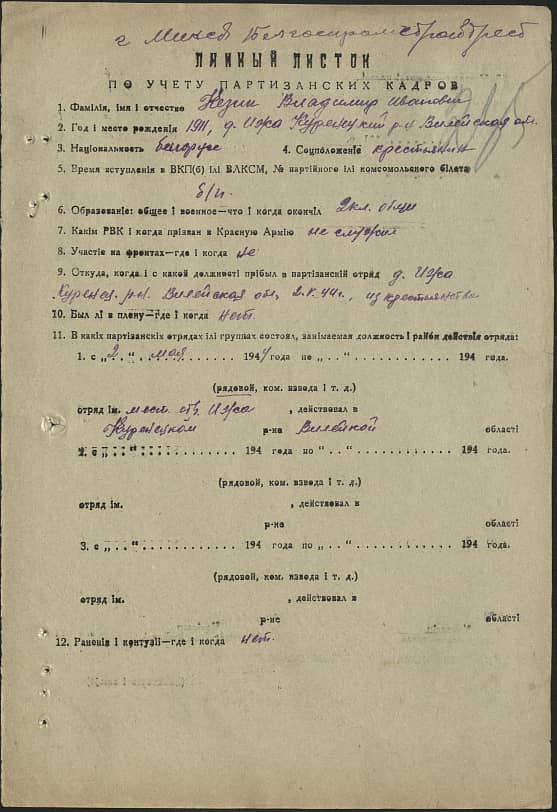 г Минск Белгоспромстройтрест
ЛИЧНЫЙ ЛИСТОК
ПО УЧЕТУ ПАРТИЗАНСКИХ КАДРОВ
1. Фамілія, імя і отчество Незик Владимир Иванович
2. Год і место рождения 1911, д. Ижа Куренецкий р-н Вилейская обл.
3. Національность белорус 4. Соцположеніе крестьянин
5. Время вступления в ВКП(б) ілі ВЛКСМ, № партійного ілі комсомольского білета
б/п.
6. Образованіе: общее і военное—что і когда окончіл 2 кл. общи
7. Какім РВК і когда прізван в Красную Армію не служил
8. Участіе на фронтах—где і когда не
9. Откуда, когда і с какой должності прібыл в партізанскій отряд д. Ижа
Куренец. р-н. Вилейская обл, 2.V.44г., из крестьянства
10. Был лі в плену—где і когда нет.
11. В какіх партізанскіх отрядах ілі группах состоял, занімаемая должность і район действія отряда:
1. с „ 2. “. мая 1944 года по „ . . “ . . . . . . . . . . . 194 года.
(рядовой, ком. взвода і т. д.)
отряд ім. мест. отр. Ижа , действовал в
Куренецком р-не Вилейкой області
2. с „ . . “ . . . . . . . . . . . 194 года по „ . . “ . . . . . . . . . . . 194 года.
(рядовой, ком. взвода і т. д.)
отряд ім. , действовал в
р-не області
3. с „ . . “ . . . . . . . . . . . 194 года по „ . . “ . . . . . . . . . . . 194 года.
(рядовой, ком. взвода і т. д.)
отряд ім. , действовал в
р-не області
12. Раненія і контузіі—где і когда нет.